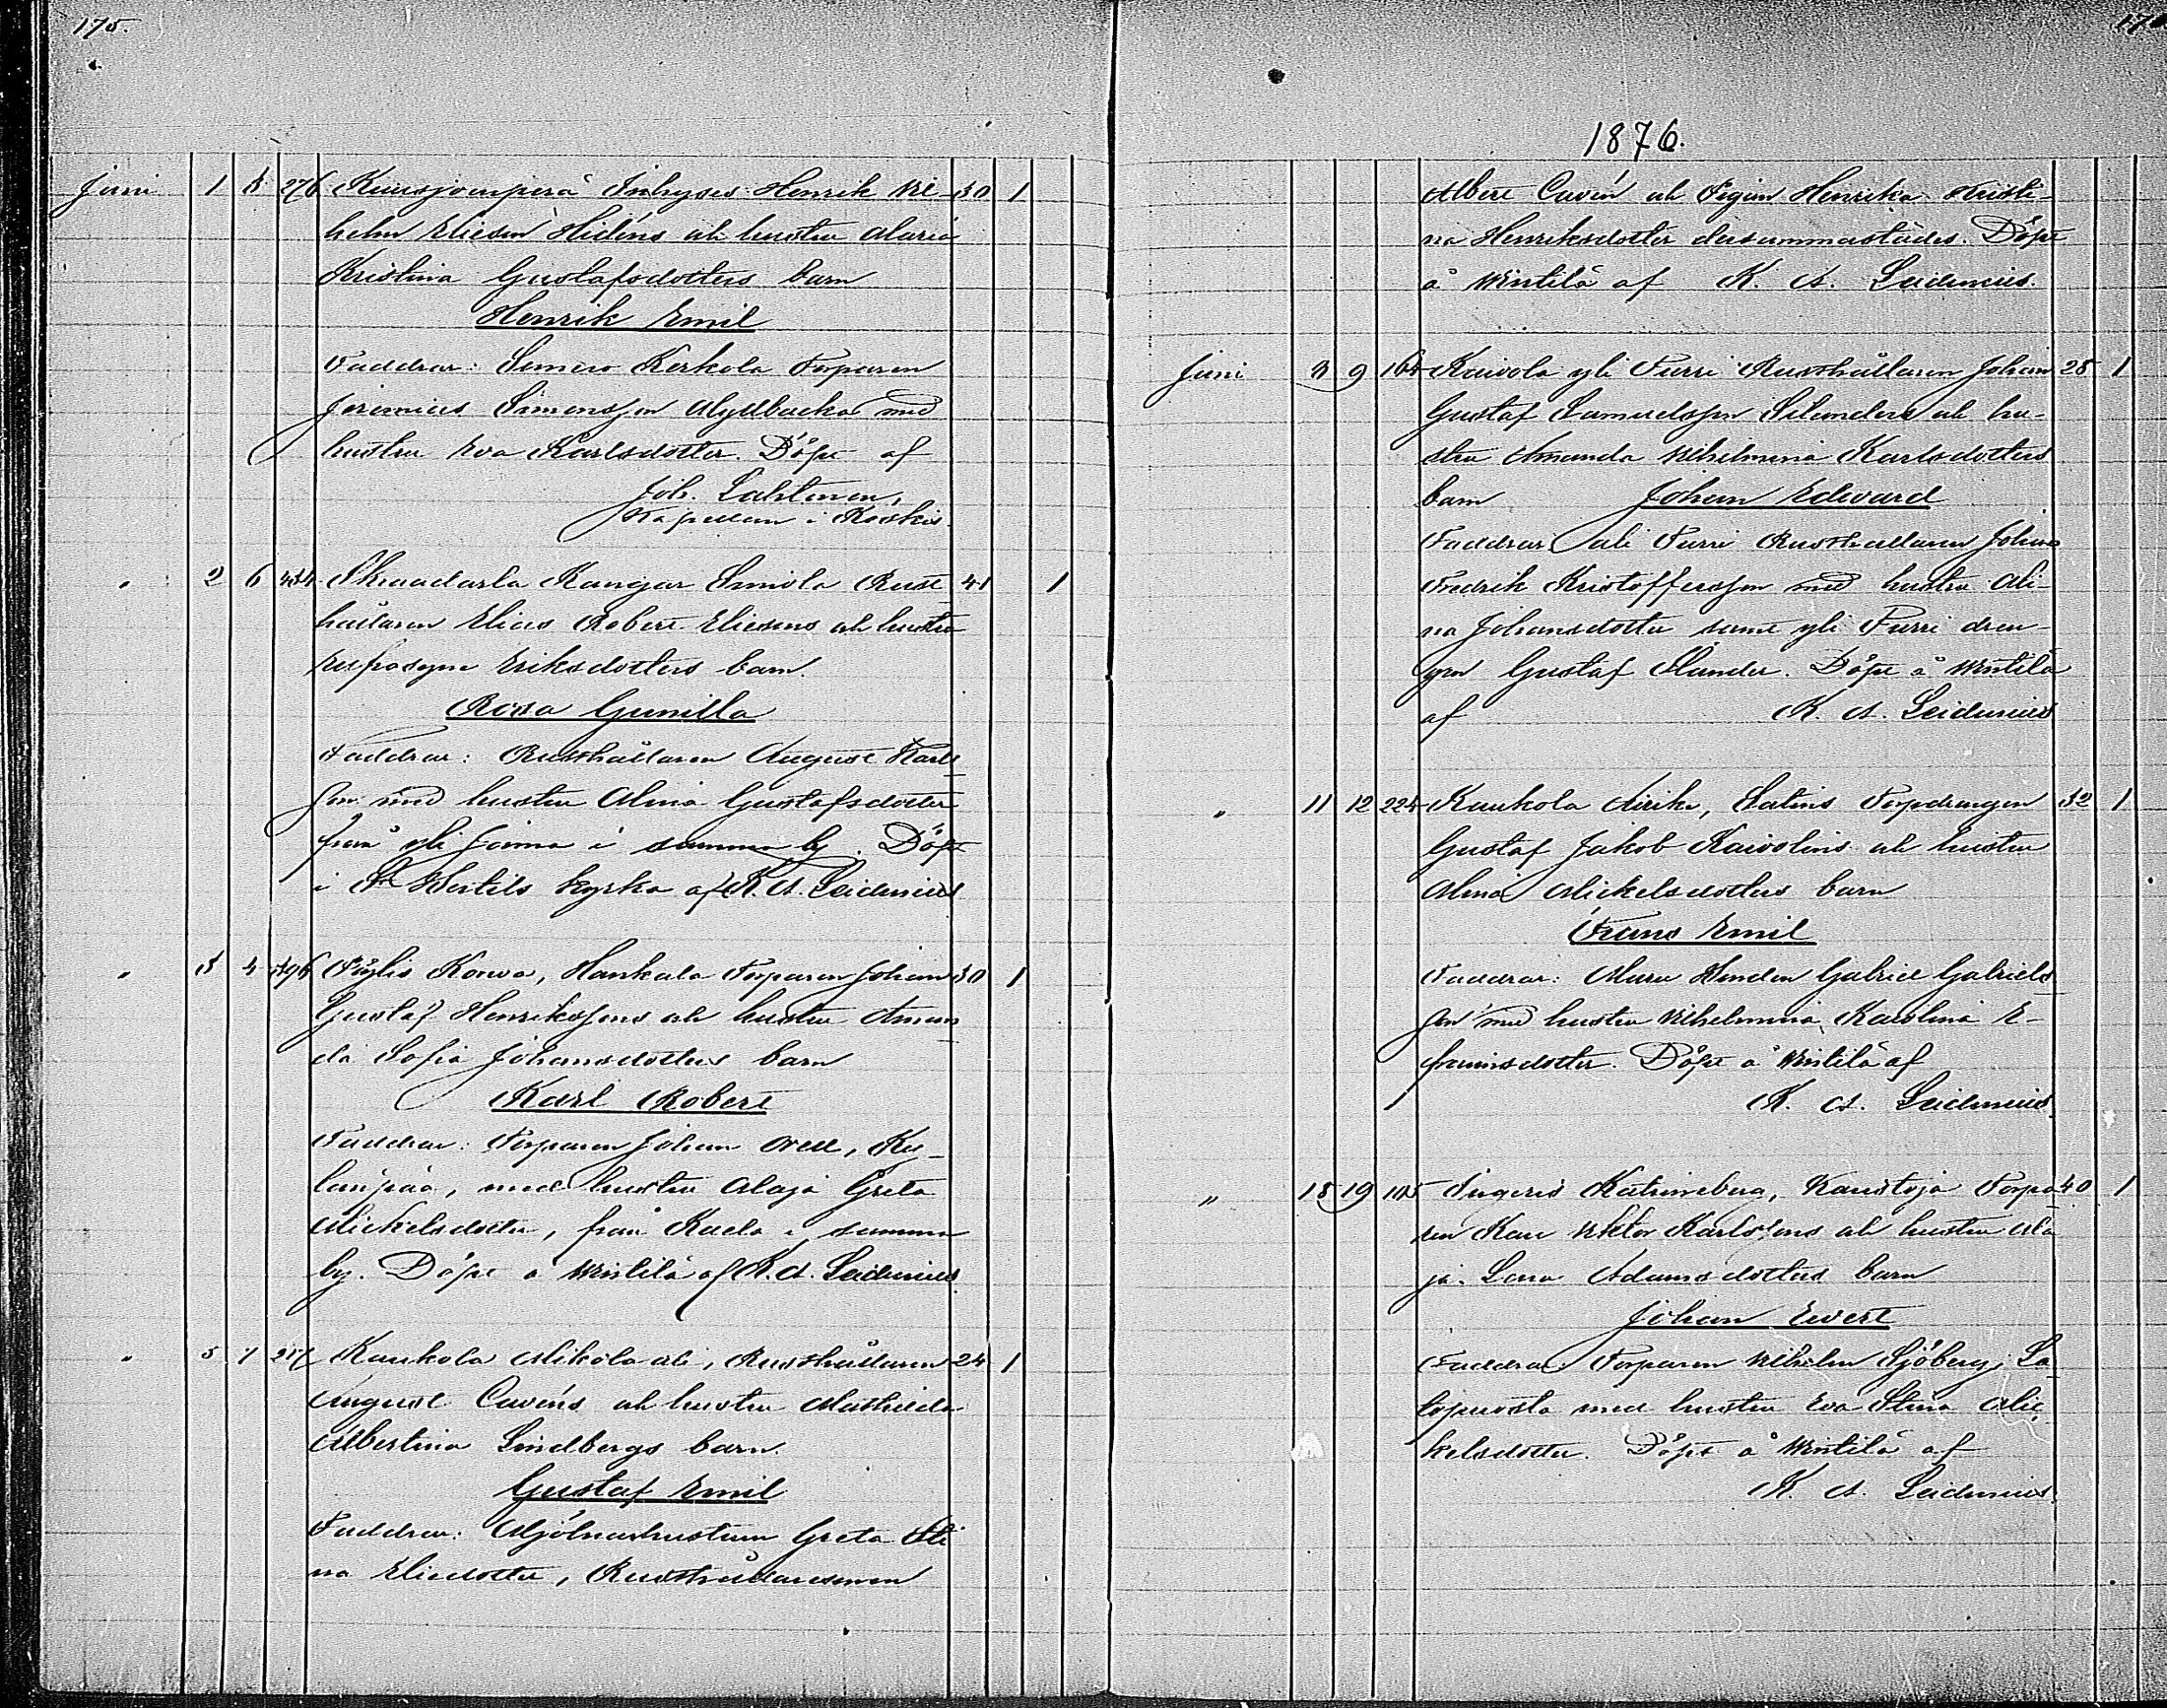 175.
Juni 1 3 276 Kuusjoenperä Inhyses Henrik Wil- 30 1
helm Eliesin Hidéns och hustru Maria
Kristina Gustafsdotters barn
Henrik Emil
Faddrar: Somero Kerkola Torparen
Jeremias Simonsson Myllbacka med
hustru Eva Karlsdotter. Döpt af
Joh. Lahtinen,
Kapellan i Koskis.
" 2 6 Kangar Simola Rust- 41 1
hållaren Elias Robert Eliesens och hustru
Eufrosyne Eriksdotters barn.
Rosa Gunilla
Faddrar: Rusthållaren August Karls-
son med hustru Maria Gustafsdotter
från yli Joima i samma by. Döpt
i St Bertils kyrka af K. A. Leidenius
" 3 4 Korva, Hankala Torparen Johan 30 1
Gustaf Henrikssons och hustru Aman-
da Sofia Johansdotters barn
Karl Robert
Faddrar: Torparen Johan Orell, Ku-
lanpää, med hustru Maja Greta
Mickelsdotter, från Kaela i samma
by. Döpt å Wintilä af K. A. Leidenius
" 5 7 Kaukola Mikola ali, Rusthållaren 24 1
August Cavéns och hustru Mathilda
Albertina Lindbergs barn.
Gustaf Emil
Faddrar: Mjölnarhustrun Greta Sti-
na Eliedotter, Rusthållaresonen
1876.
Albert Cavén och Pigan Henrika Kristi-
na Henriksdotter dersammastädes. Döpt
å Wintilä af K. A. Leidenius.
Juni 8 9 164 Kaivola yli Purri Rusthållaren Johan 28 1
Gustaf Samuelsson Silanders och hu-
stru Amanda Wilhelmina Karlsdotters
barn Johan Edvard
Faddrar: ali Purri Rusthållaren Johan
Fredrik Kristoffersson med hustru Mi-
na Johansdotter samt yli Purri drän-
gen Gustaf Slander. Döpt å Wintilä
af K. A. Leidenius
" 11 12 224 Kaukola Eirikn, Torpdrängen 32 1
Gustaf Jakob Kaivolins och hustru
Maria Mickelsdotters barn
Frans Emil
Faddrar: Muru Bonden Gabriel Gabriels-
son med hustru Wilhelmina Karolina E-
fraimsdotter. Döpt å Wintilä af
K. A. Leidenius
" 18 19 105 Katrineberg, Kanstoja Torpa- 40 1
ren Karl Viktor Karlssons och hustru Ma-
ja Lena Adamsdotters barn
Johan Evert
Faddrar: Torparen Wilhelm Sjöberg, La-
topuosta med hustru Eva Stina Mic-
kelsdotter. Döpt å Wintilä af
K. A. Leidenius.